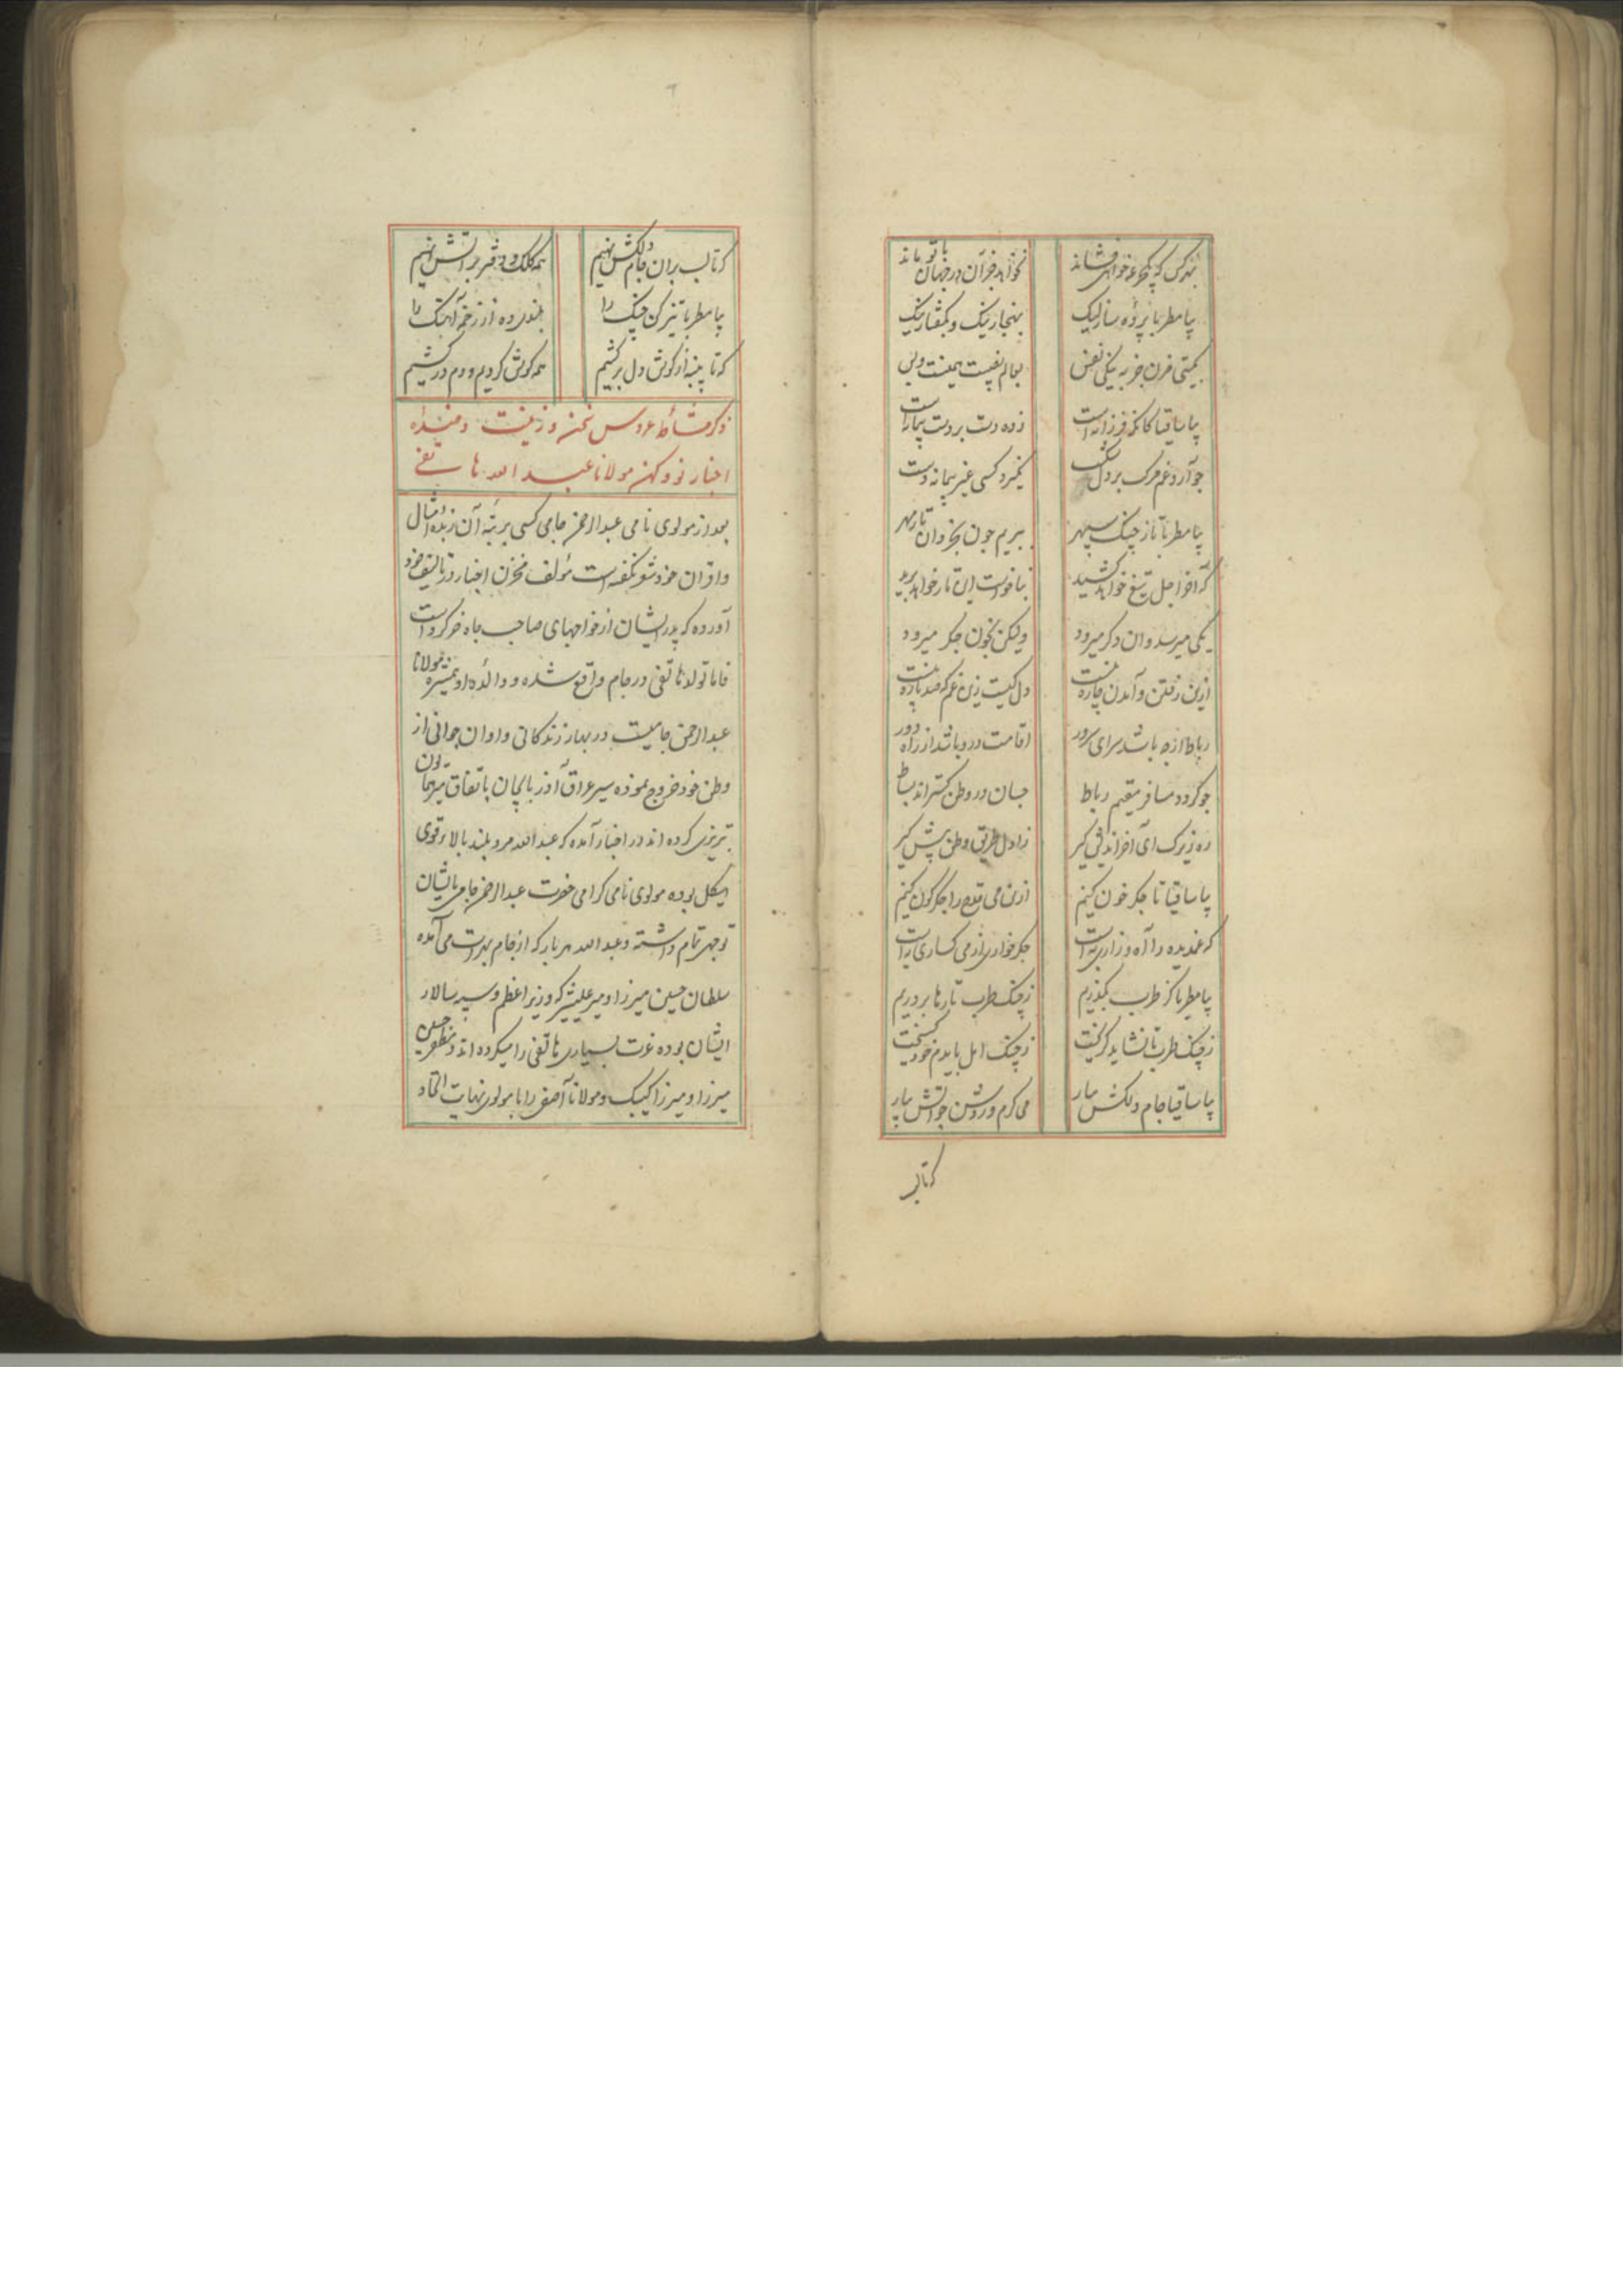 بهر کس که یک جرعه خواهی فشاند نخواهد جز آن در جهان با تو ماند
بیا مطربا پرده ساز لیک بهنجار نیک و بگفتار نیک
بگیتی مزن جز به نیکی نفس بعالم نصیب همینست و بس
بیا ساقیا کانکه فرزانه است زده دست بر دست پیمانه است
چو آرد غم مرگ بر دل شکست نگیرد کسی غیر پیمانه دست
بیا مطربا تا ز چنگ سپهر ببریم چون بخردان تار مهر
که آخر اجل تیغ خواهد کشید بناخواست این تار خواهد برید
یکی میرسد وان دگر میرود ولیکن بخون جگر میرود
ازین رفتن و آمدن چاره نیست دل کیست زین غم که صد پاره نیست
رباط ار چه باشد سرای سرور اقامت درو باشد از راه دور
چو گردد مسافر مقیم رباط چسان در وطن گستراند بساط
ره زیرک آی آخر اندیش گیر ز اول طریق وطن پیش گیر
بیا ساقیا تا جگر خون کنیم ازین می قدح را جگرگون کنیم
که غمدیده را آه و زاری به است جگر خواری از می گساری به است
بیا مطربا کز طرب بگذریم ز چنگ طرب تارها بر دریم
ز چنگ طرب تا نشاید گریخت ز چنگ امل بایدم خود گسیخت
بیا ساقیا جام دلکش بیار می گرم و روشن چو آتش بیار
که تا لب
که تا لب بران جام دلکش نهیم همه کلک و دفتر بر آتش نهیم
بیا مطربا تیز کن چنگ را بلندی ده از زخمه آهنگ را
که تا پنبه از گوش دل بر کشیم همه گوش گردیم و دم در کشیم
ذکر مشاطه عروس سخن و زینت دهنده
اخبار نو و کهن مولانا عبد الله هاتفی
بعد از مولوی نامی عبد الرحمن جامی کسی برتبه آن زبده امثال
و اقران خود شعر نگفته است مؤلف مخزن اخبار در تالیف خود
آورده که پدر ایشان از خواجهای صاحب جاه خرگرد است
فاما تولد هاتفی در جام واقع شده و والده او همشیره مولانا
عبد الرحمن جامیست در بهار زندگانی و اوان جوانی از
وطن خود خروج نموده سیر عراق آذربایجان باتفاق میر همایون
تبریزی کرده اند در اخبار آمده که عبد الله مرد بلند بالا و قوی
هیکل بوده مولوی نامی گرامی حضرت عبد الرحمن جامی بایشان
توجهی تمام داشته و عبد الله هر بار که از جام بهرات می آمده
سلطان حسین میرزا و میر علیشیر که وزیر اعظم و سپه سالار
ایشان بوده عزت بسیاری هاتفی را میکرده اند و مظفر حسین
میرزا و میرزا کیبک و مولانا آصفی را با مولوی نهایت اتحاد